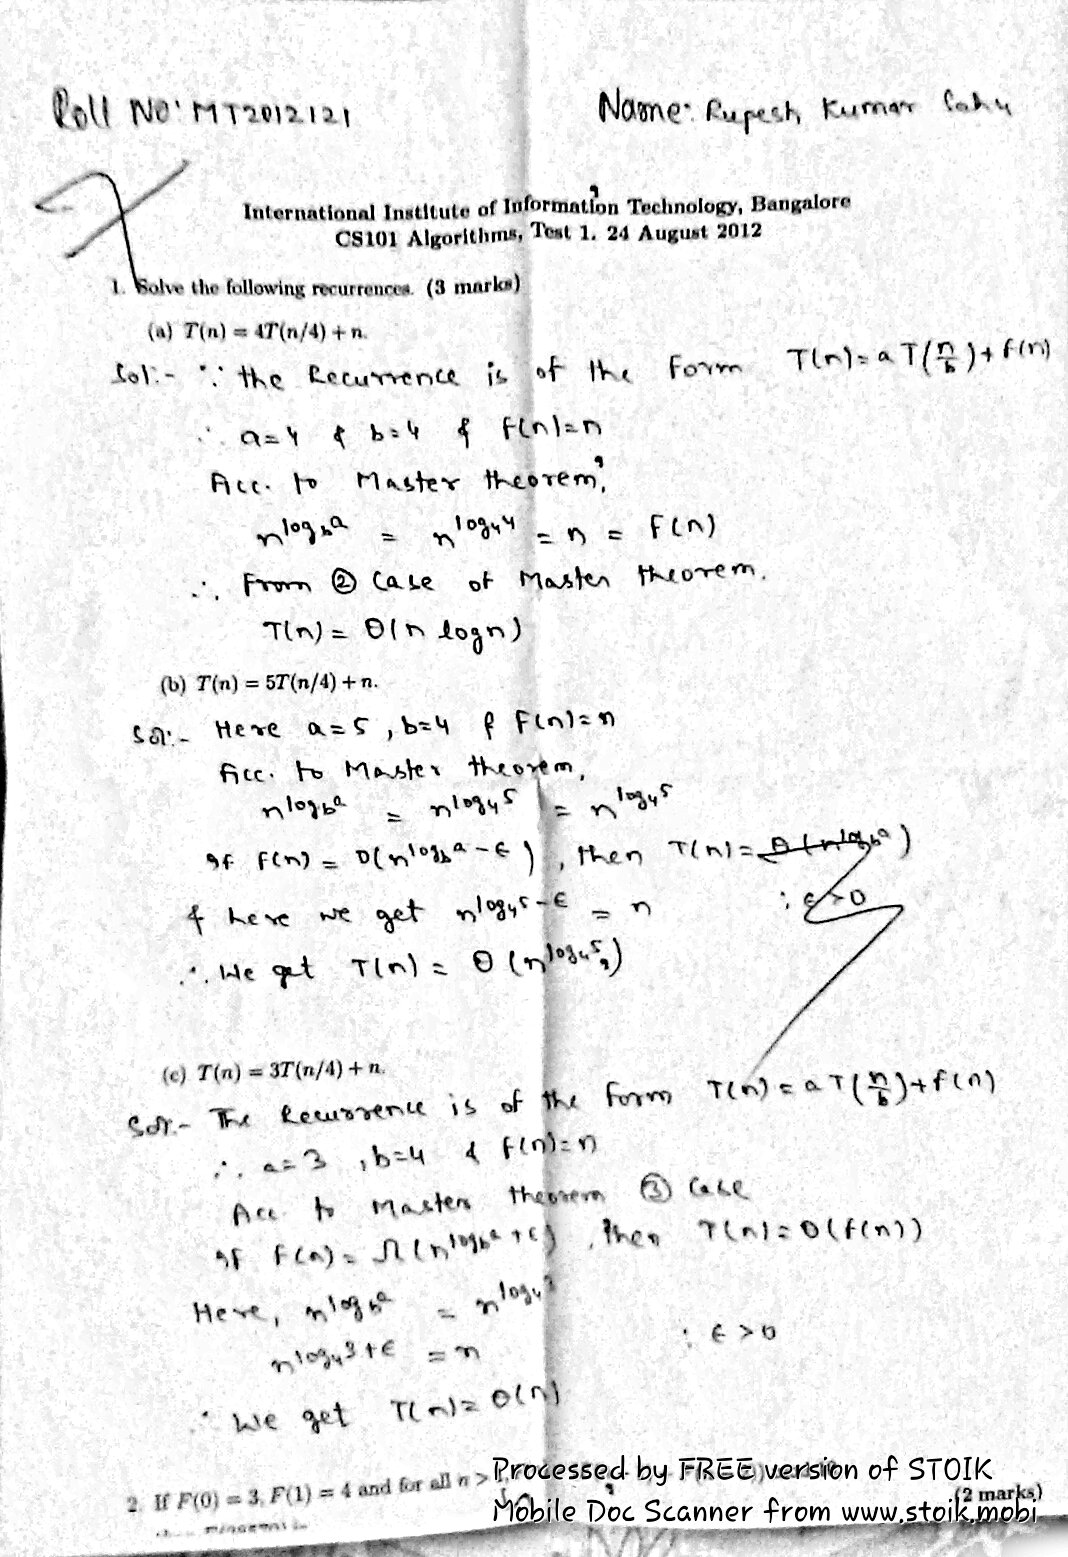 Roll NO: MT2012121
Name: Rupesh Kumar Sahu
International Institute of Information Technology, Bangalore
CS101 Algorithms, Test 1. 24 August 2012
1. Solve the following recurrences. (3 marks)
(a) T(n) = 4T(n/4) + n.
Sol:- ∵ the Recurrence is of the form T(n) = a T(n/b) + f(n)
∴ a=4 & b=4 & f(n)=n
Acc. to Master theorem,
n^log_b a = n^log_4 4 = n = f(n)
∴ From ② Case of Master theorem.
T(n) = Θ(n logn)
(b) T(n) = 5T(n/4) + n.
Sol:- Here a=5, b=4 & f(n)=n
Acc. to Master theorem,
n^log_b a = n^log_4 5 = n^log_4 5
If f(n) = O(n^log_b a - ε), then T(n) = Θ(n^log_b a)
& here we get n^log_4 5 - ε = n ; ε>0
∴ We get T(n) = Θ(n^log_4 5)
(c) T(n) = 3T(n/4) + n.
Sol:- The Recurrence is of the form T(n) = a T(n/b) + f(n)
∴ a=3, b=4 & f(n)=n
Acc. to Master theorem ③ Case
If f(n) = Ω(n^log_b a + ε), then T(n) = Θ(f(n))
Here, n^log_b a = n^log_4 3
n^log_4 3+ε = n ; ε>0
∴ We get T(n) = Θ(n)
2. If F(0) = 3, F(1) = 4 and for all n >
(2 marks)
Processed by FREE version of STOIK
Mobile Doc Scanner from www.stoik.mobi